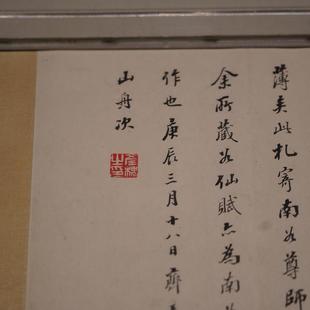 薄矣此札寄南公尊師
余所藏公仙賦亦為南
作也庚辰三月十八日齊
山舟次